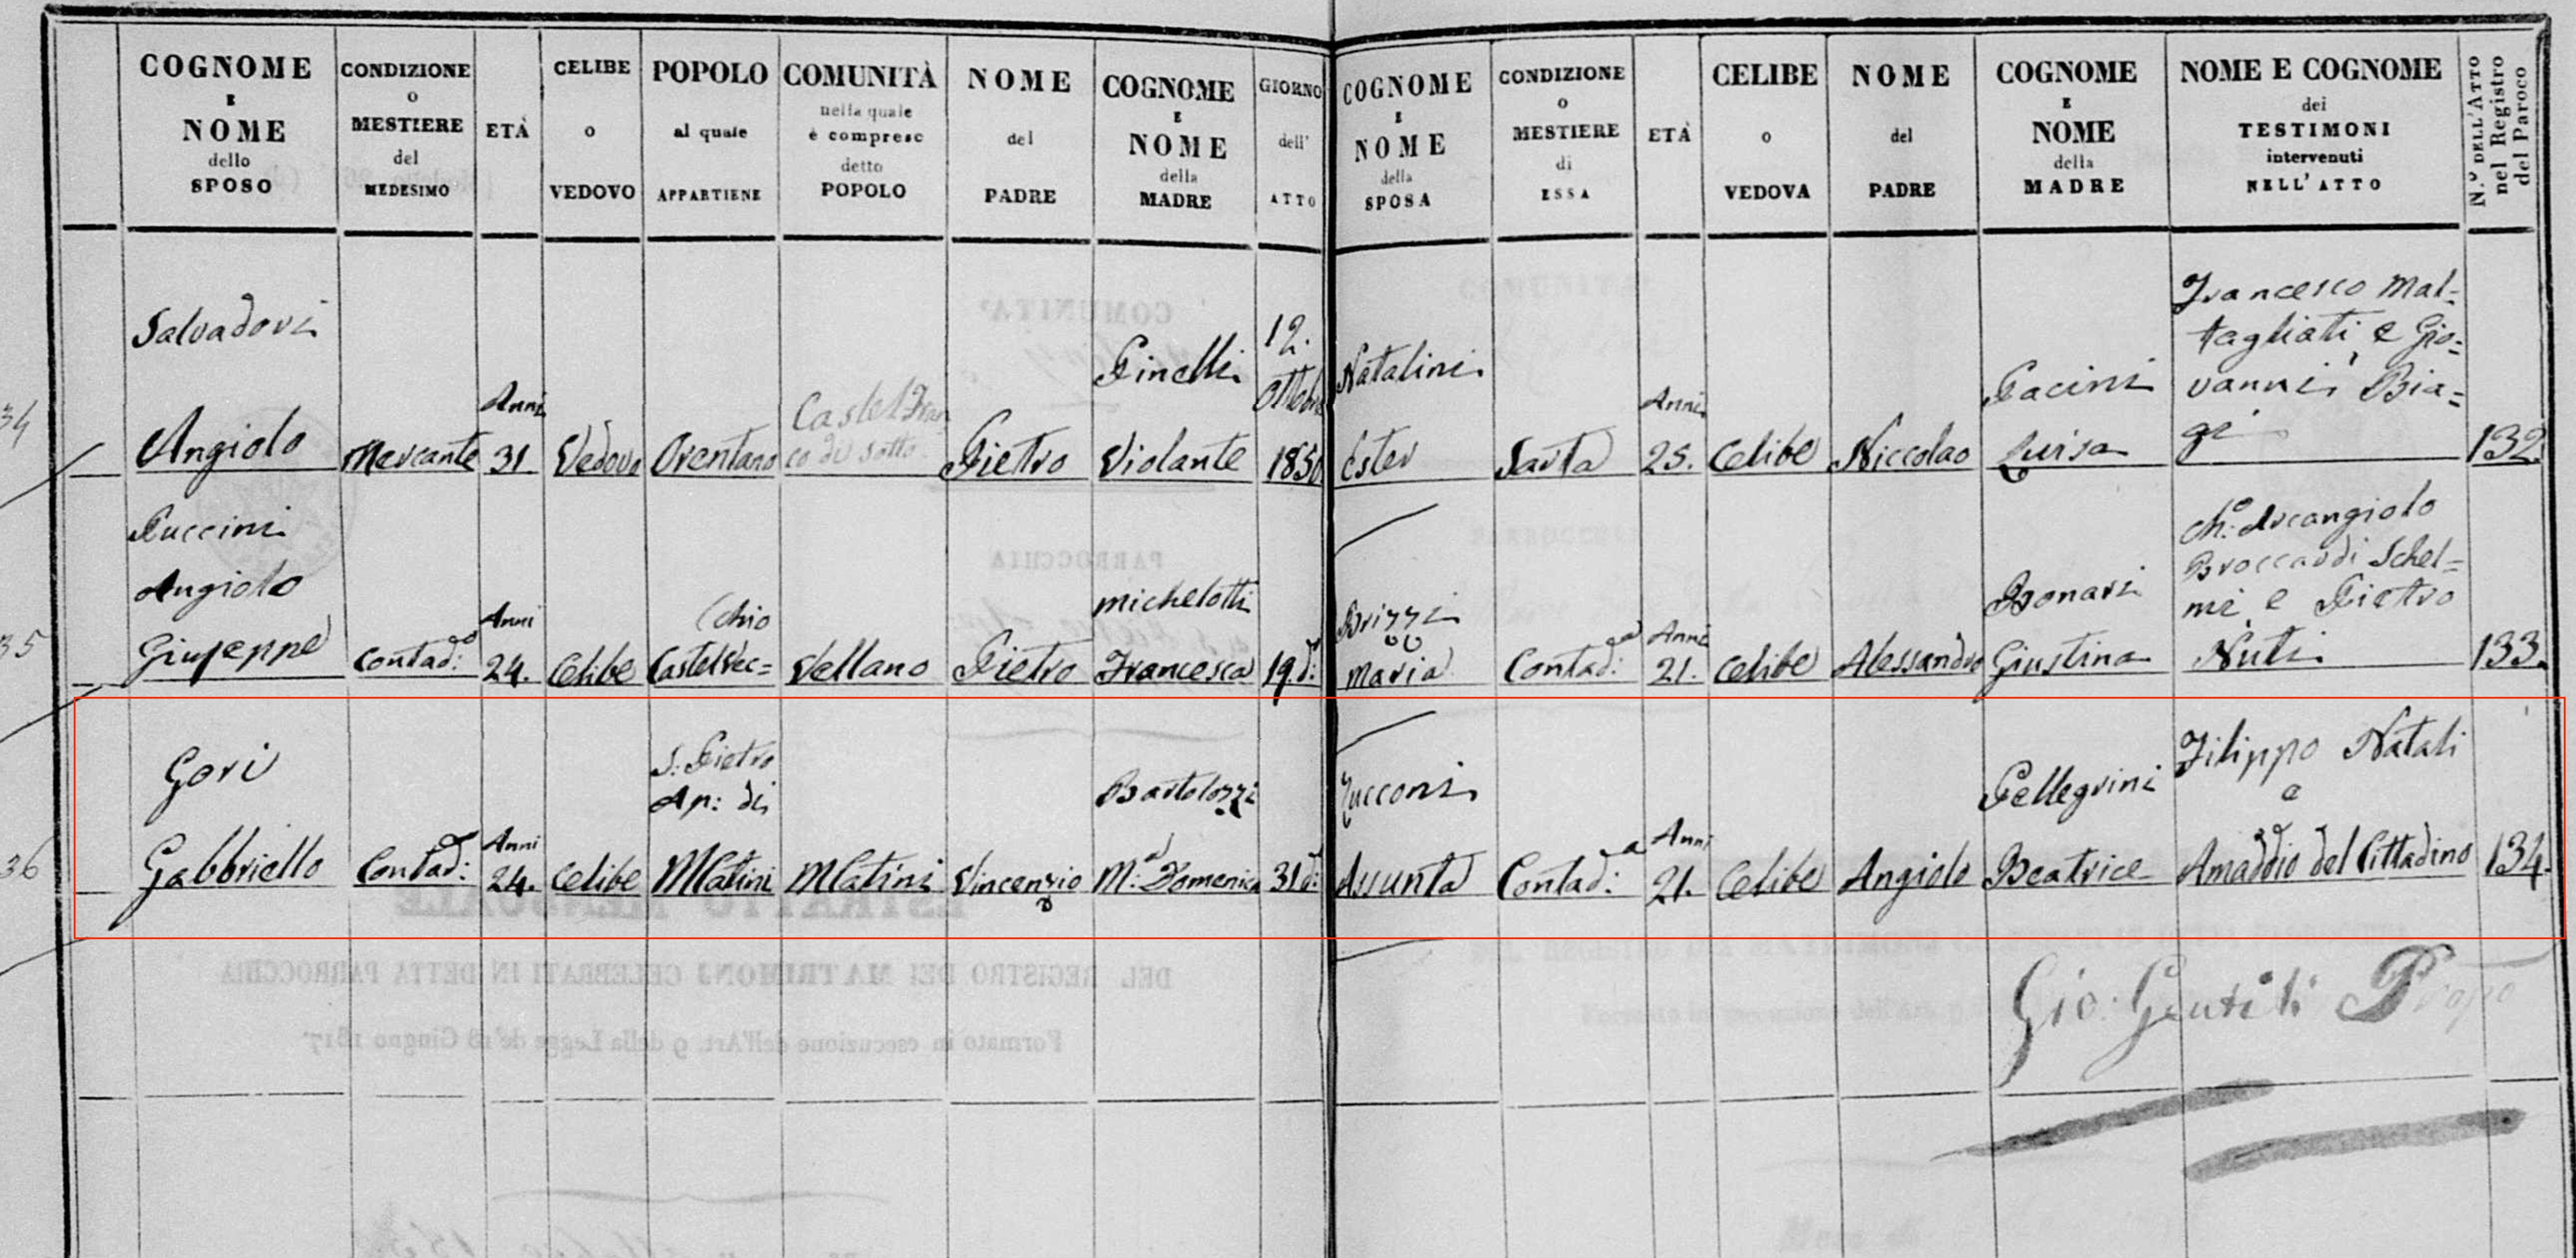 COGNOME E NOME dello SPOSO
CONDIZIONE O MESTIERE del MEDESIMO
ETÀ
CELIBE O VEDOVO
POPOLO al quale APPARTIENE
COMUNITÀ nella quale è compreso detto POPOLO
NOME del PADRE
COGNOME E NOME della MADRE
GIORNO dell' ATTO
COGNOME E NOME della SPOSA
CONDIZIONE O MESTIERE di ESSA
ETÀ
CELIBE O VEDOVA
NOME del PADRE
COGNOME E NOME della MADRE
NOME E COGNOME dei TESTIMONI intervenuti NELL'ATTO
N.º DELL'ATTO nel Registro del Paroco
34
Salvadori
Angiolo
Mercante
Anni
31.
Vedovo
Orentano
Castel Fran
co di Sotto
Pietro
Pinelli
Violante
12.
Ottobre
1850
Natalini
Ester
Sarta
Anni
25.
Celibe
Niccolao
Pacini
Luisa
Francesco Mal=
tagliati e Gio=
vanni Bia=
gi
132.
35
Puccini
Angiolo
Giuseppe
Contad:º
Anni
24.
Celibe
(chio
Castelvec=
Vellano
Pietro
Michelotti
Francesca
19.d:º
Brizzi
Maria
Contad:a
Anni
21.
Celibe
Alessandro
Bonari
Giustina
Arcangiolo
Broccardi Schel=
mi e Pietro
Nuti
133.
36
Gori
Gabbriello
Contad:º
Anni
24.
Celibe
S: Pietro
Ap: di
Mlatini
Mlatini
Vincenzio
Bartolozzi
M:a Domenica
31 d:º
Zucconi
Assunta
Contad:a
Anni
21.
Celibe
Angiolo
Pellegrini
Beatrice
Filippo Natali
e
Amaddio del Cittadino
134.
Gio: Gentili P
COMUNITA'
PARROCCHIA
ESTRATTO MENSUALE
DEL REGISTRO DEI MATRIMONJ CELEBRATI IN DETTA PARROCCHIA
Formato in esecuzione dell'Art. 9 della Legge de' 18 Giugno 1817